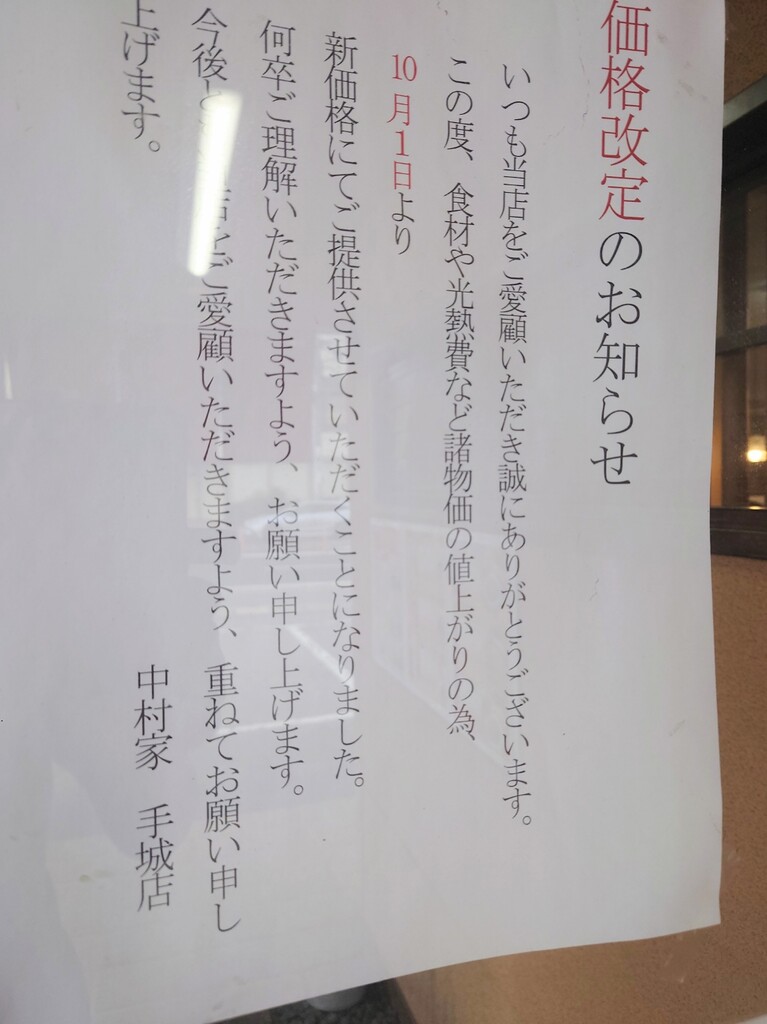 価格改定のお知らせ
いつも当店をご愛顧いただき誠にありがとうございます。
この度、食材や光熱費など諸物価の値上がりの為、
10月1日より
新価格にてご提供させていただくことになりました。
何卒ご理解いただきますよう、お願い申し上げます。
今後と 店をご愛顧いただきますよう、重ねてお願い申し
上げます。
中村家 手城店